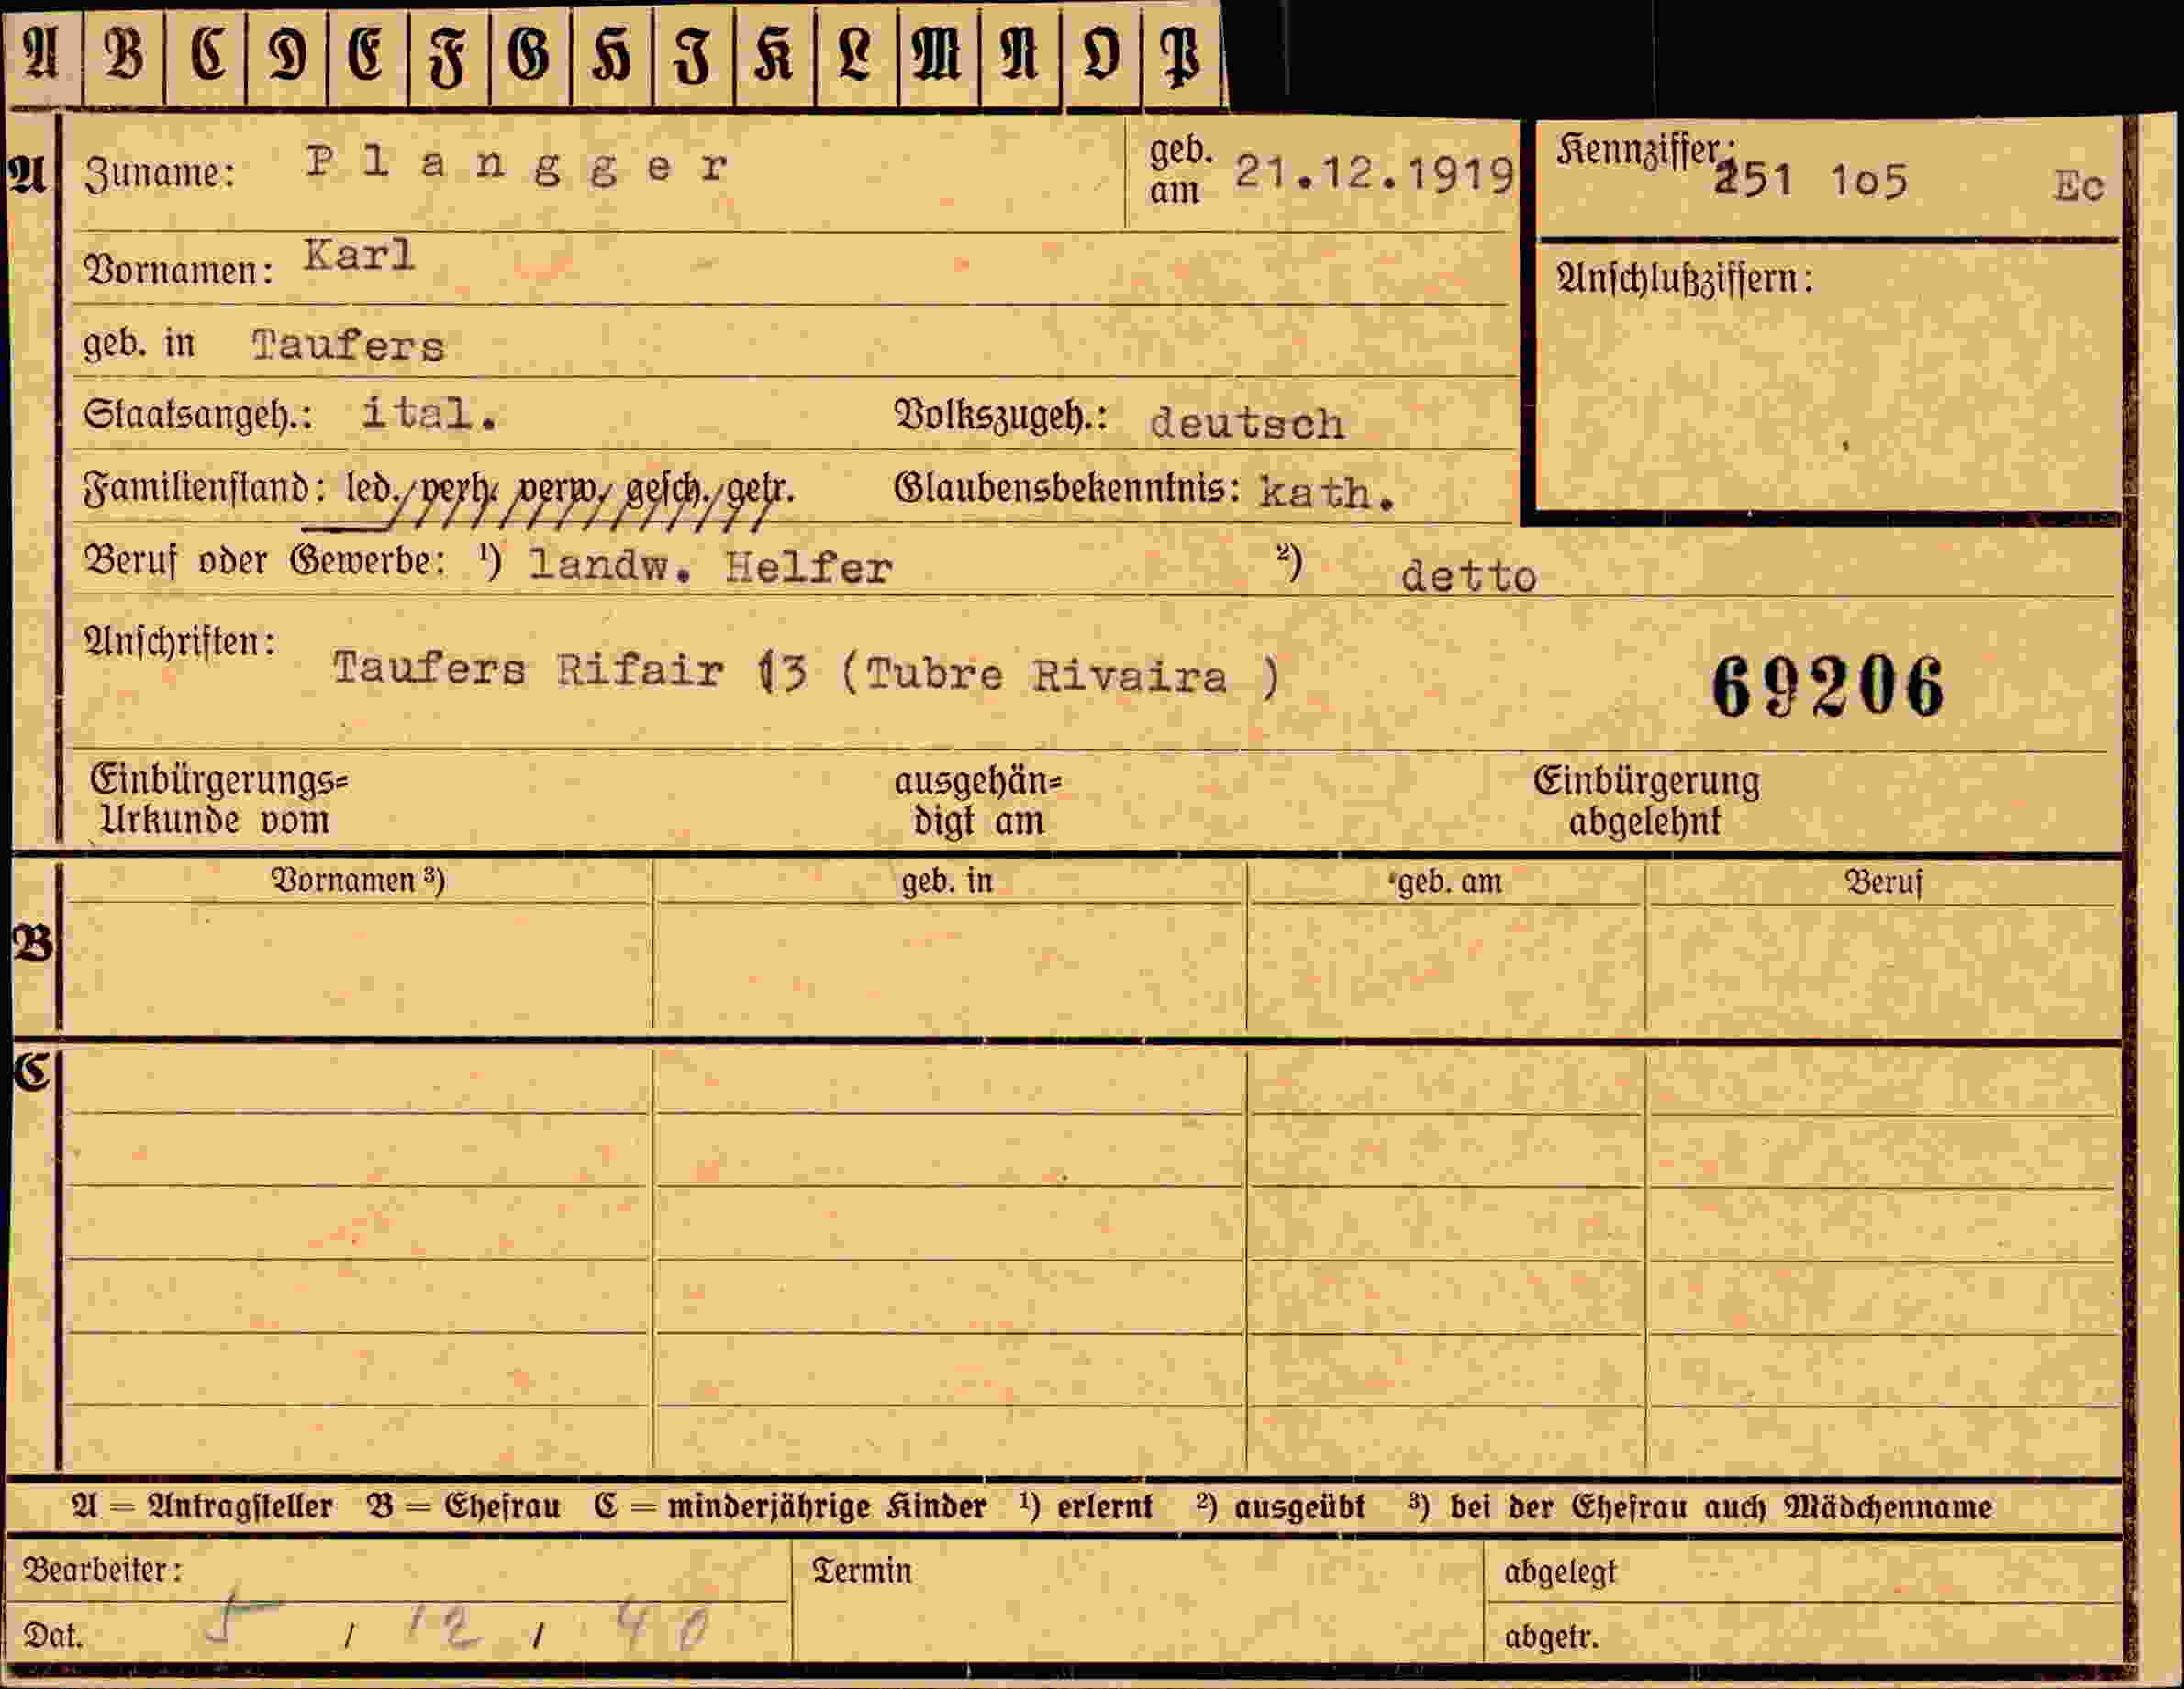 A B C D E F G H I K L M N O P
A Zuname: Plangger geb. am 21.12.1919 Kennziffer: 251 1o5 Ec
Vornamen: Karl
Anschlußziffern:
geb. in Taufers
Staatsangeh.: ital. Volkszugeh.: deutsch
Familienstand: led./verh./verw./gesch./getr. Glaubensbekenntnis: kath.
Beruf oder Gewerbe: ¹) landw. Helfer ²) detto
Anschriften: Taufers Rifair 13 (Tubre Rivaira )
69206
Einbürgerungs= ausgehän= Einbürgerung
Urkunde vom digt am abgelehnt
Vornamen ³) geb. in geb. am Beruf
B
C
A = Antragsteller B = Ehefrau C = minderjährige Kinder ¹) erlernt ²) ausgeübt ³) bei der Ehefrau auch Mädchenname
Bearbeiter: Termin abgelegt
Dat. 5 / 12 / 40 abgetr.